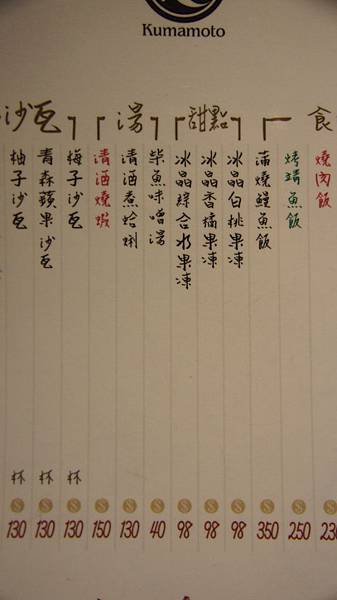 Kumamoto
食
燒肉飯 230
烤鯖魚飯 250
蒲燒鰻魚飯 350
甜點
冰晶白桃果凍 98
冰晶香橘果凍 98
冰晶綜合水果凍 98
湯
柴魚味噌湯 40
清酒煮蛤蜊 130
清酒燒蝦 150
沙瓦
梅子沙瓦 杯 130
青森蘋果沙瓦 杯 130
柚子沙瓦 杯 130